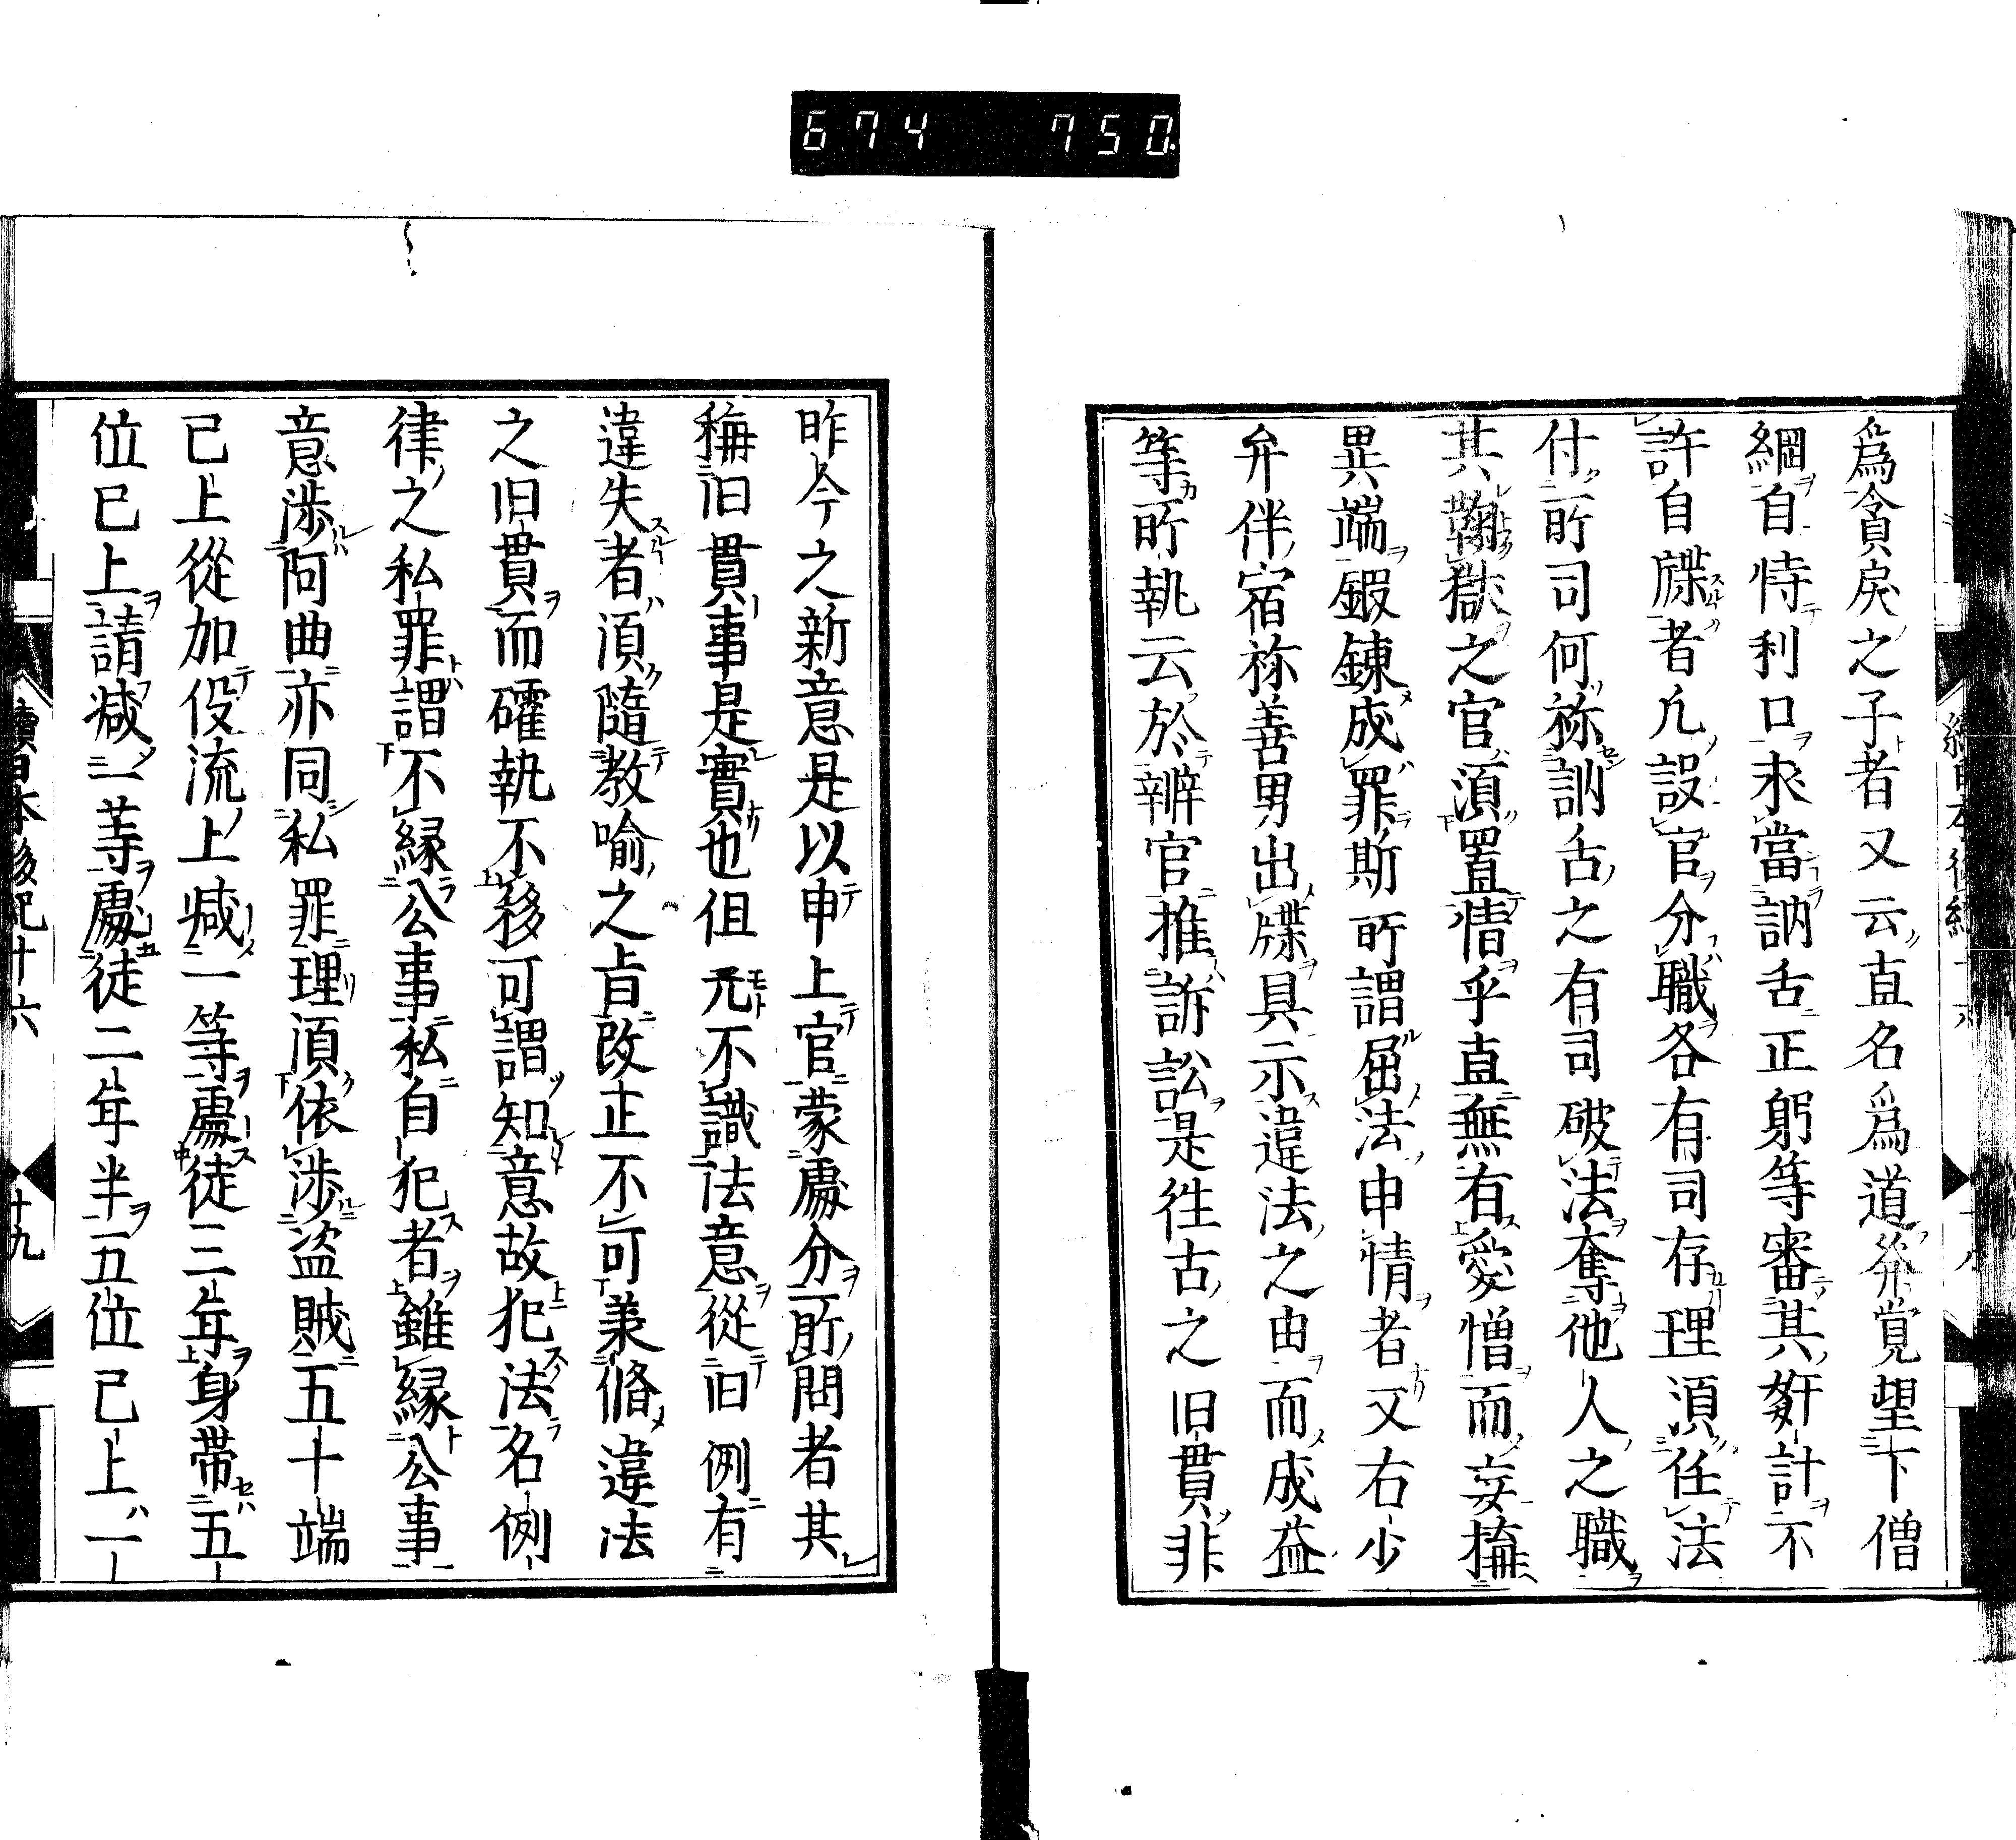 674 750
爲貪戾之子者又云直名爲道並覚望下僧
綱自恃利口求當訥舌正躬等審其姧計不
許自牒者凡設官分職各有司存理湏任法
付所司何祢訥舌之有司破法奪他人之職
其鞫獄之官湏置情乎直無有愛憎而妄搆
異端鍜錬成罪斯所謂屈法申情者又右少
弁伴宿祢善男出牒具示違法之由而成益
等所執云於辨官推訴訟是徃古之旧貫非
昨今之新意是以申上官蒙處分所問者其
稱旧貫事是實也但元不識法意從旧例有
違失者湏隨教喻之旨改正不可兼脩違法
之旧貫而確執不移可謂知意故犯法名例
律之私罪謂不縁公事私自犯者雖縁公事
意渉阿曲亦同私罪理湏依渉盗賊五十端
已上從加役流上减一等處徒三年身帯五
位已上請减一等處徒二年半五位已上一
續日本後紀十六 十九